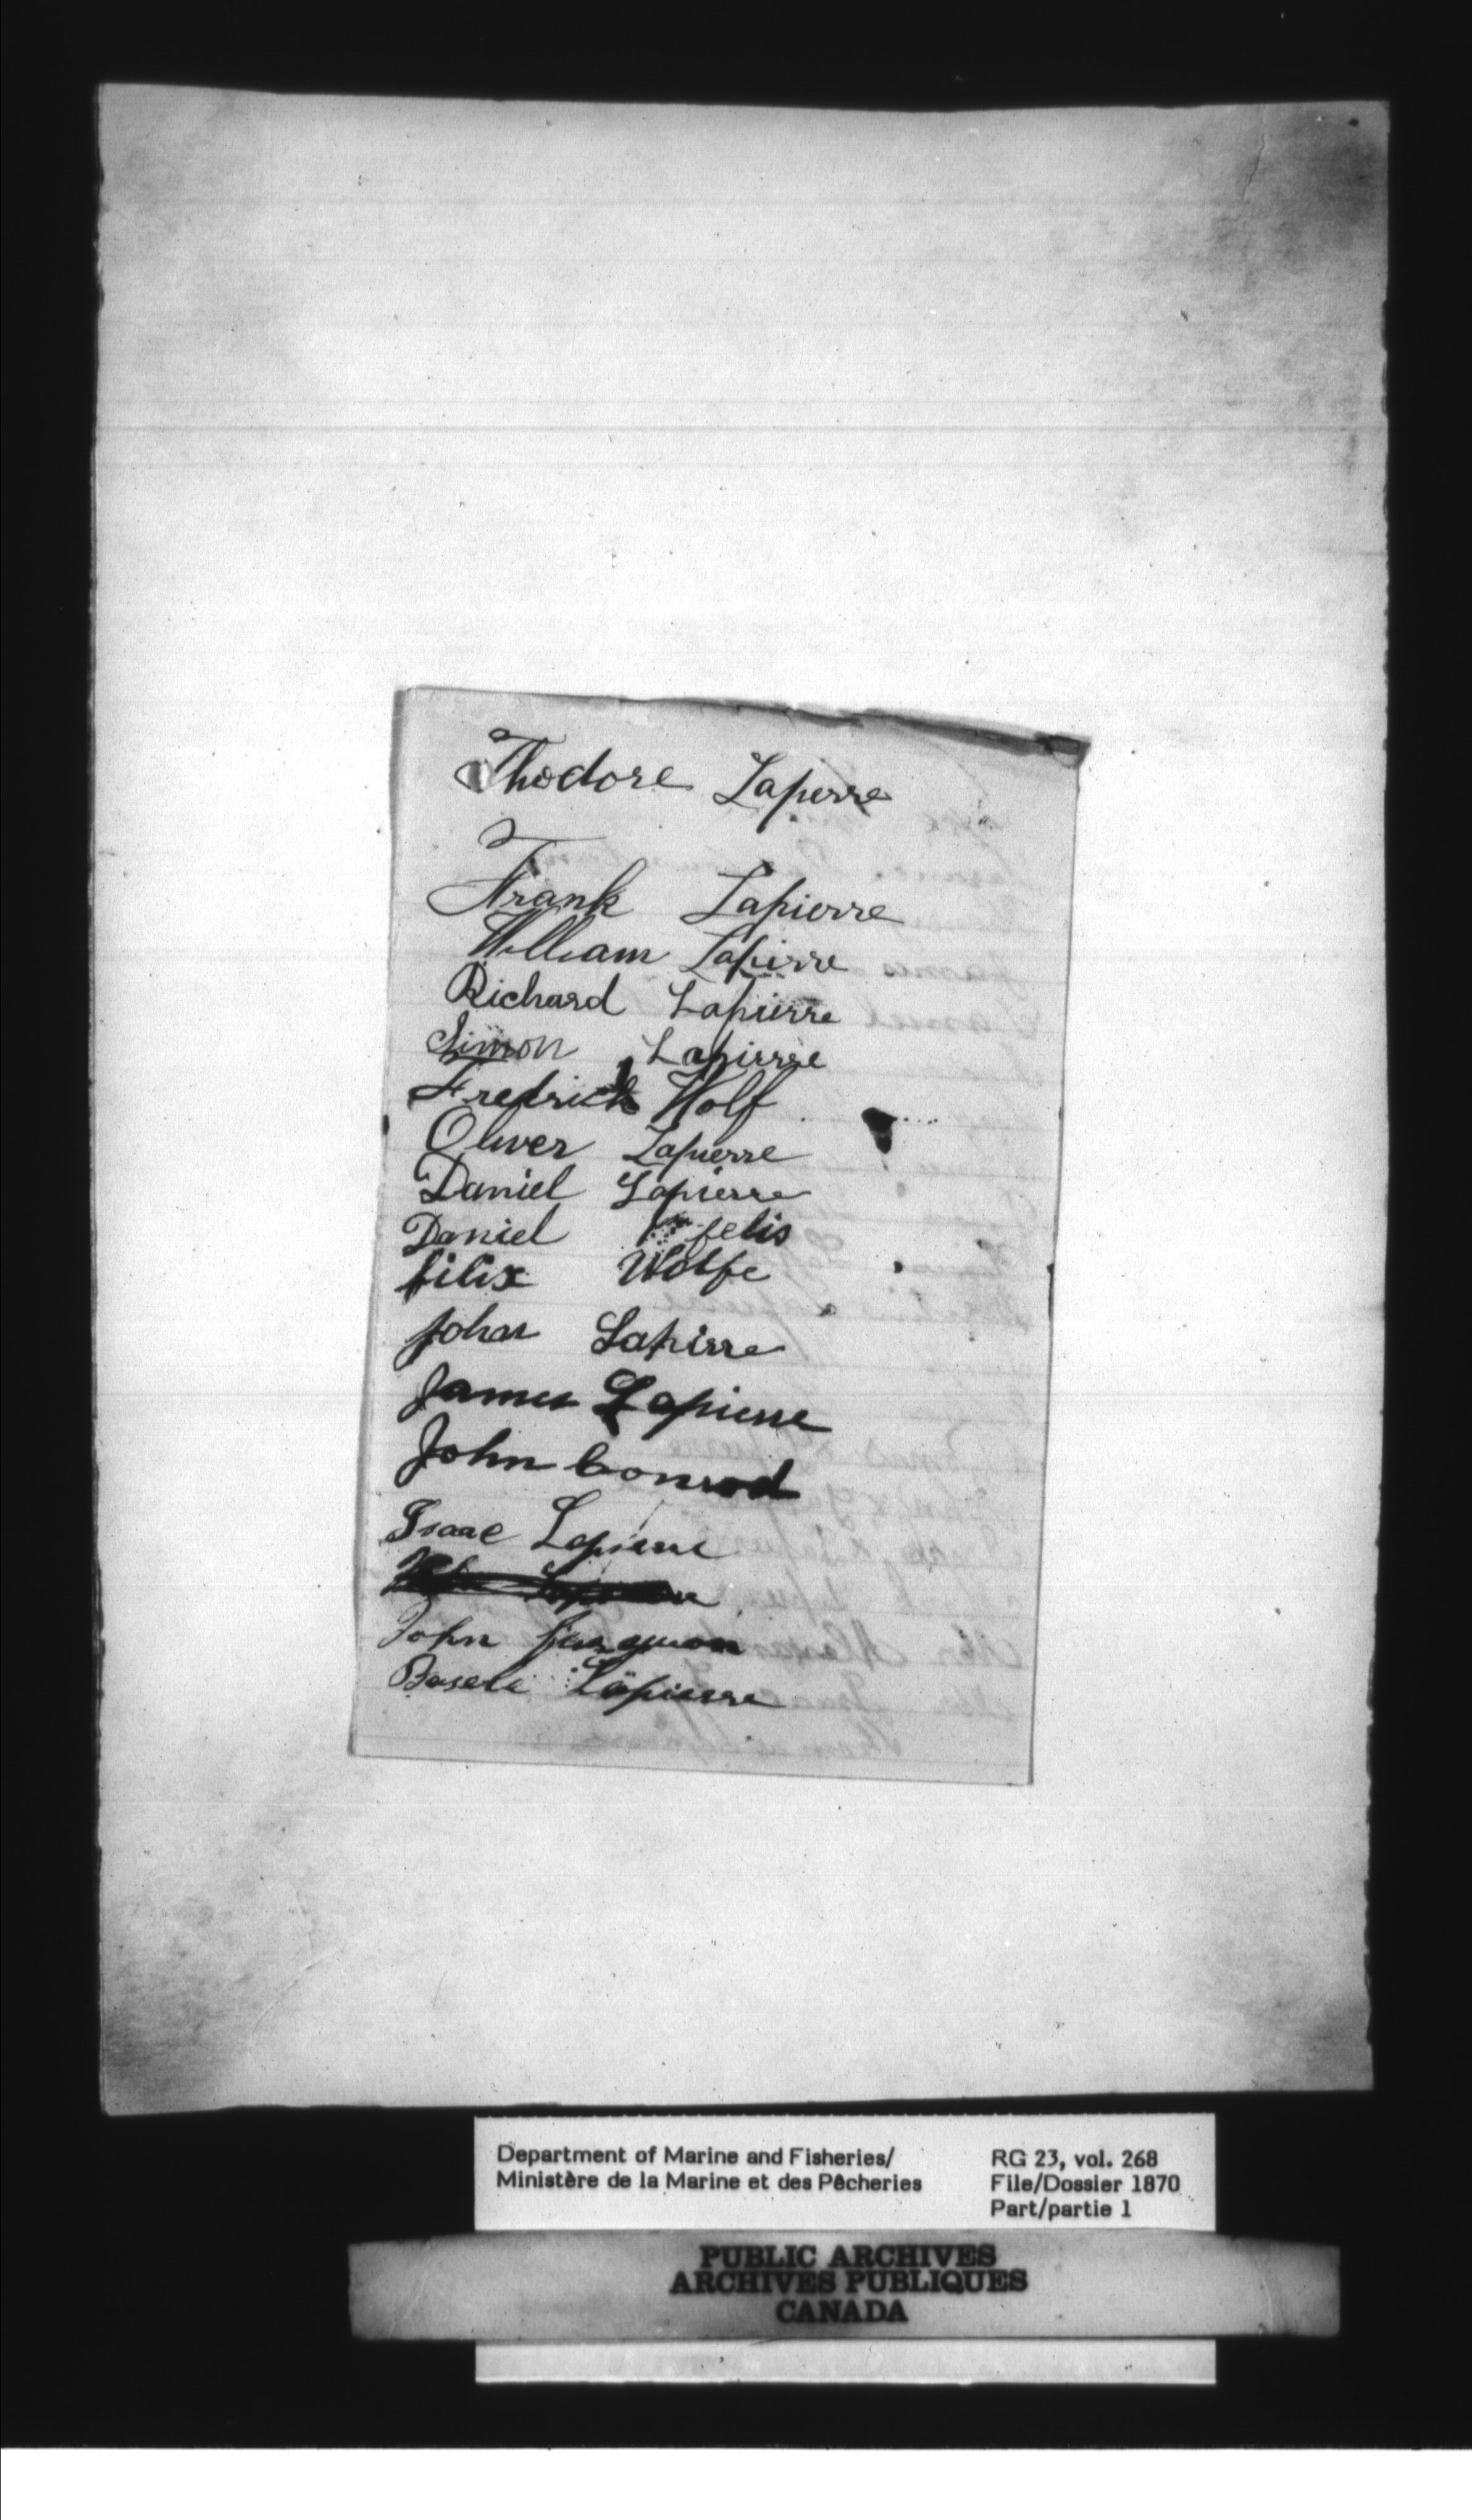 Thodore Lapierre
Frank Lapierre
William Lapirre
Richard Lapierre
Simon Lapirrre
Fredrick Wolf
Oliver Lapierre
Daniel Lapierre
Daniel felis
filix Wolfe
John Lapirre
James Lapierre
John Conrod
Isaac Lapierre
John
Basele Lapierre
Department of Marine and Fisheries/ RG 23, vol. 268
Ministère de la Marine et des Pêcheries File/Dossier 1870
Part/partie 1
PUBLIC ARCHIVES
ARCHIVES PUBLIQUES
CANADA